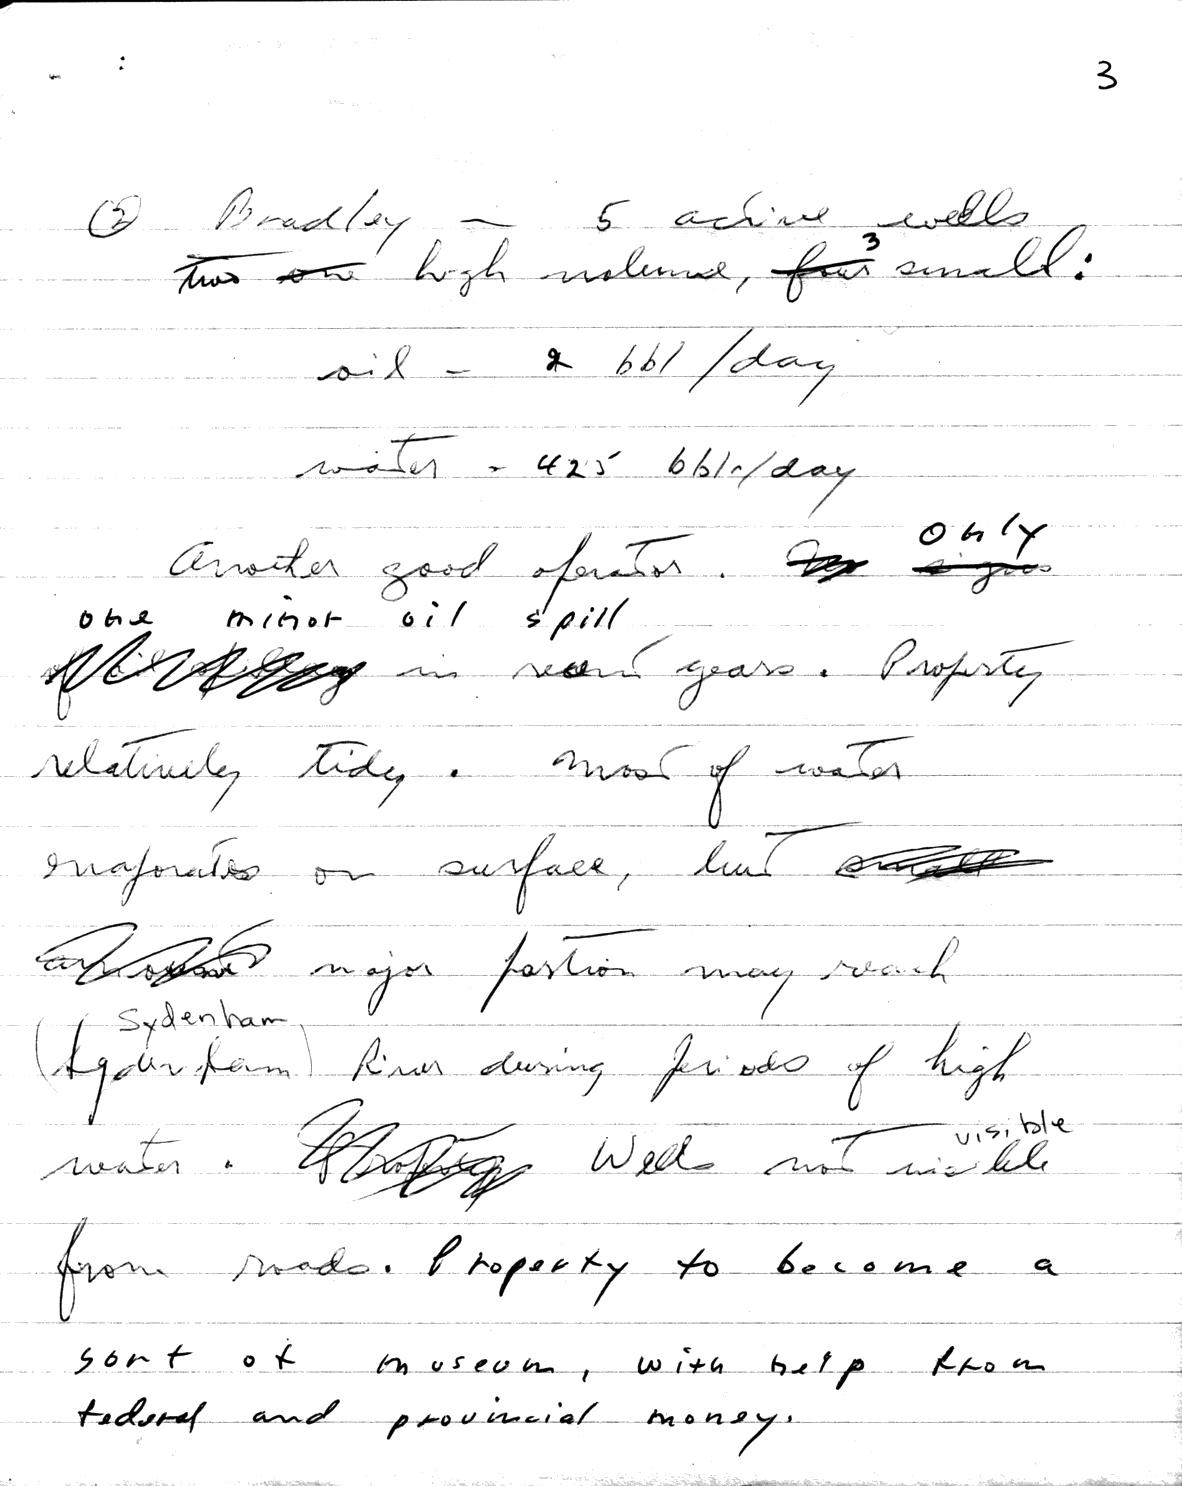 3
② Bradley - 5 active wells
two one high volume, four 3 small:
oil - 2 bbl/day
water - 425 bbls/day
Another good operator. No signs only
one minor oil spill
in recent years. Property
relatively tidy. Most of water
evaporates on surface, but small
amount major portion may reach
Sydenham
(Sydenham) River during periods of high
water. Wells not visible visible
from roads. Property to become a
sort of museum, with help from
federal and provincial money.